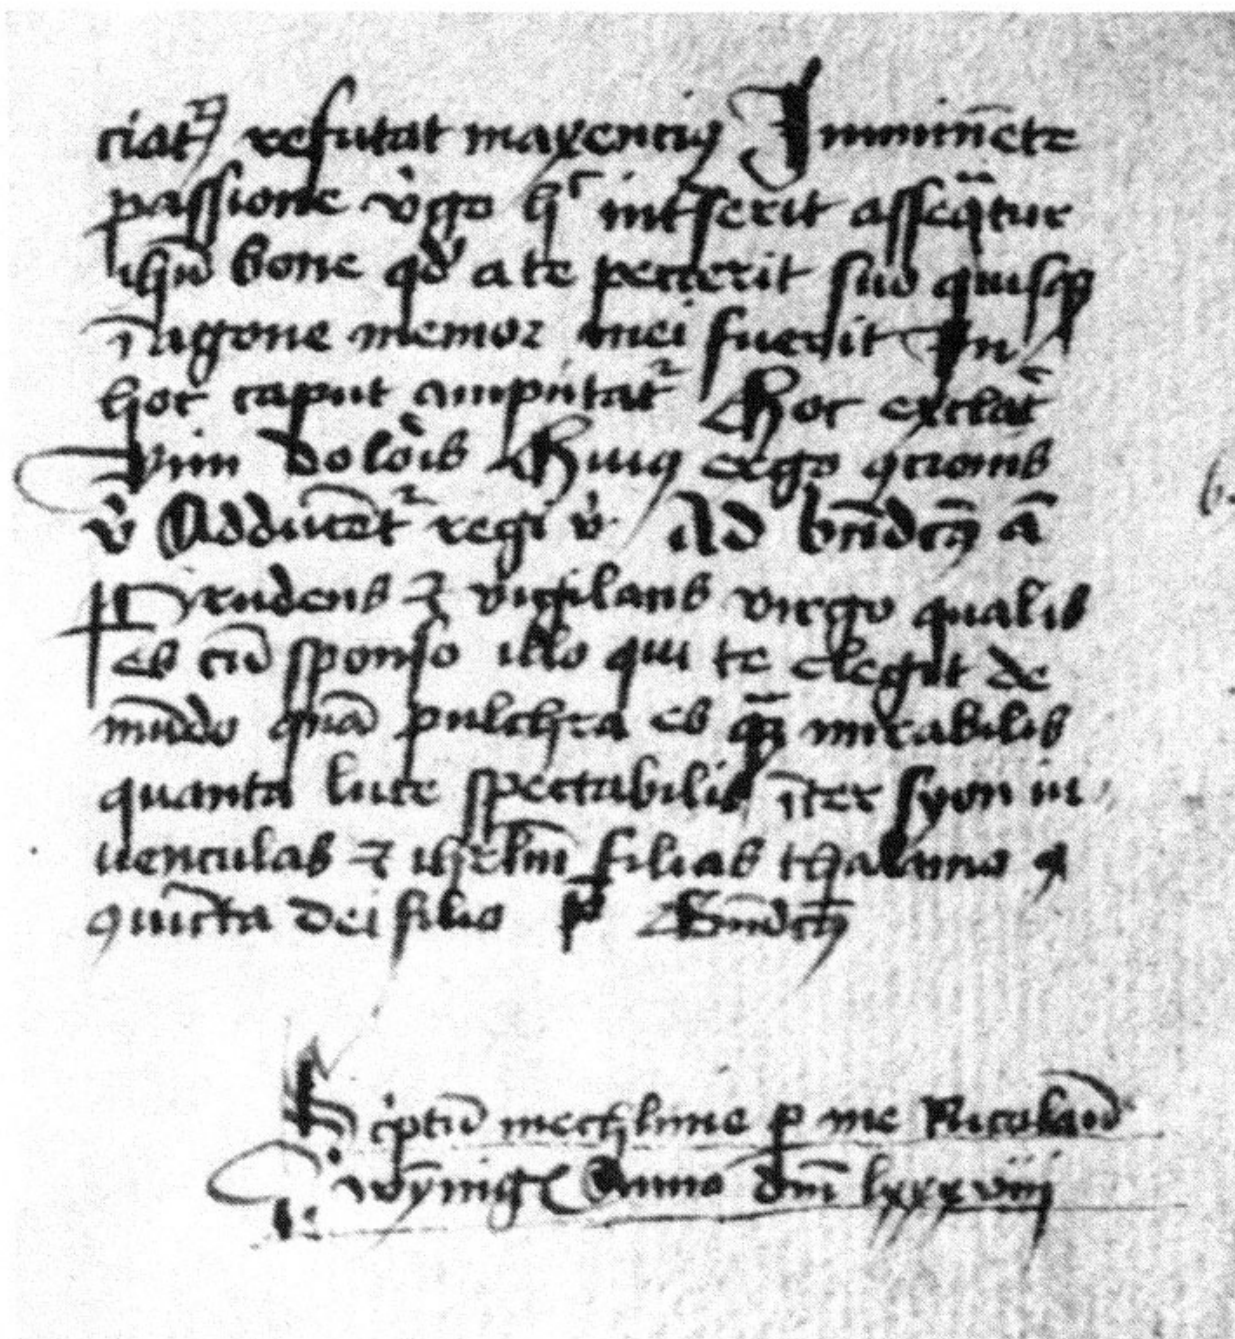 ciatꝰ refutat maxencius Iminēte
passione v̓go hͨ int̓serit asseq̄tur
ihū bone qd̓ a te pecierit suo quisq̄
ī agone memor mei fuerit In
hoc caput amputat᷑ Hoc
vim doloris Huiꝰ ergo
v̓ Adducēt᷑ regi v̓ Ad bn̄dcꝰ ā
Prudens ⁊ vigilans virgo qualis
es cū sponso illo qui te elegit de
mūdo quā pulchra es q̄ mirabilis
quanta luce spectabilis īter syon iu
uenculas ⁊ ihrlm̄ filias thalamo ꝯ
ꝯiūcta dei filio p̄s Bn̄dcꝰ
Sc̓ptū mechlinie ꝑ me Nicolaū
Anno dn̄i lxxxviij